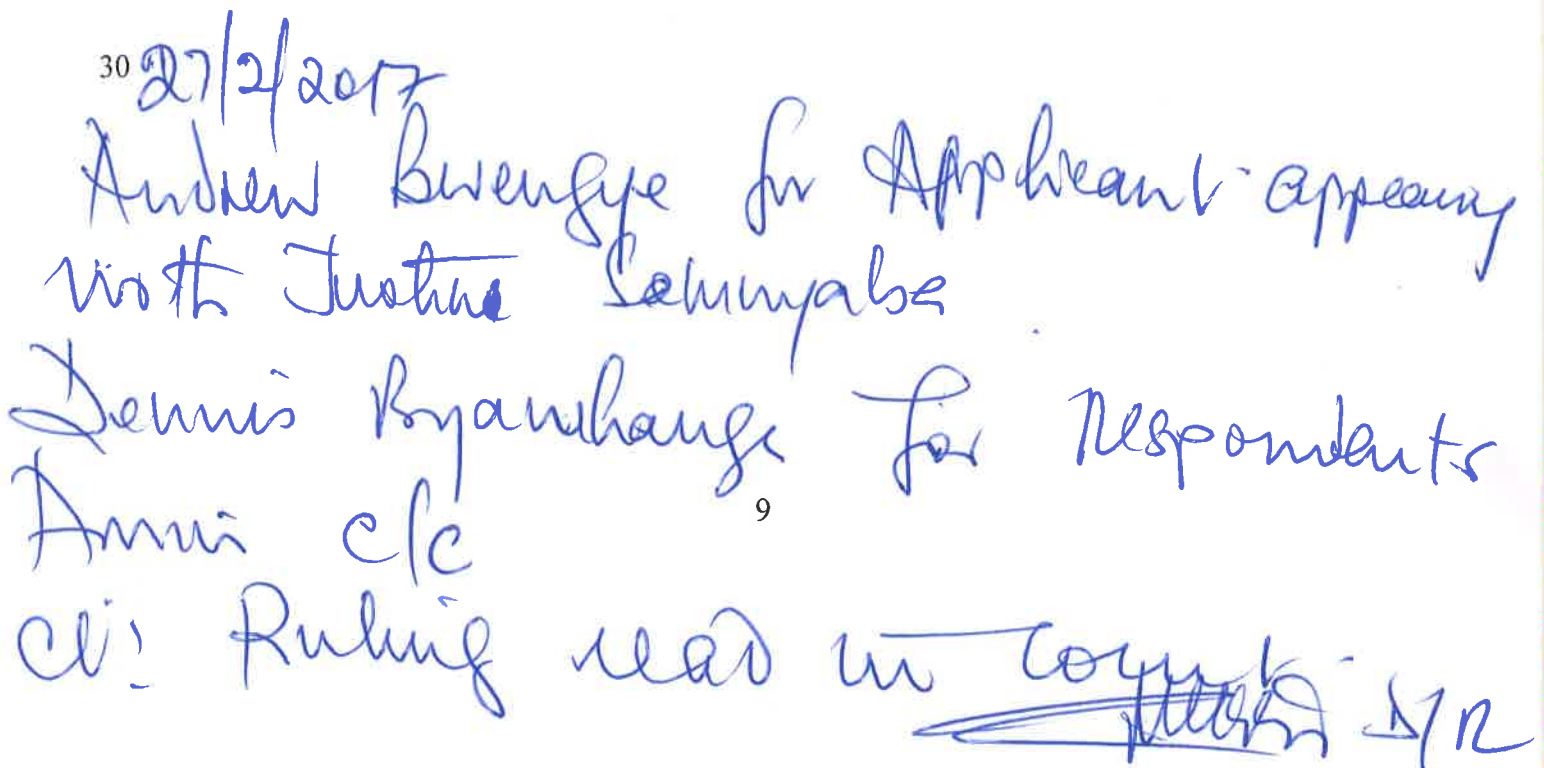 30 27/2/2017
Andrew Bwengye for Applicant appearing
with Justine
Dennis Byamkhange for Respondents
Annis c/c
Ct: Ruling read in Court.
D/R
9